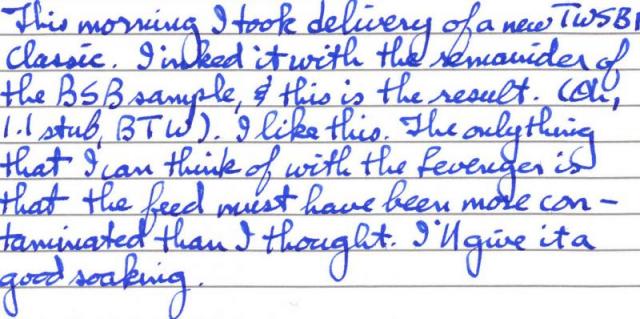 This morning I took delivery of a new TWSBI
Classic. I inked it with the remainder of
the BSB sample, & this is the result. (Oh,
1.1 stub, BTW). I like this. The only thing
that I can think of with the Levenger is
that the feed must have been more con-
taminated than I thought. I'll give it a
good soaking.